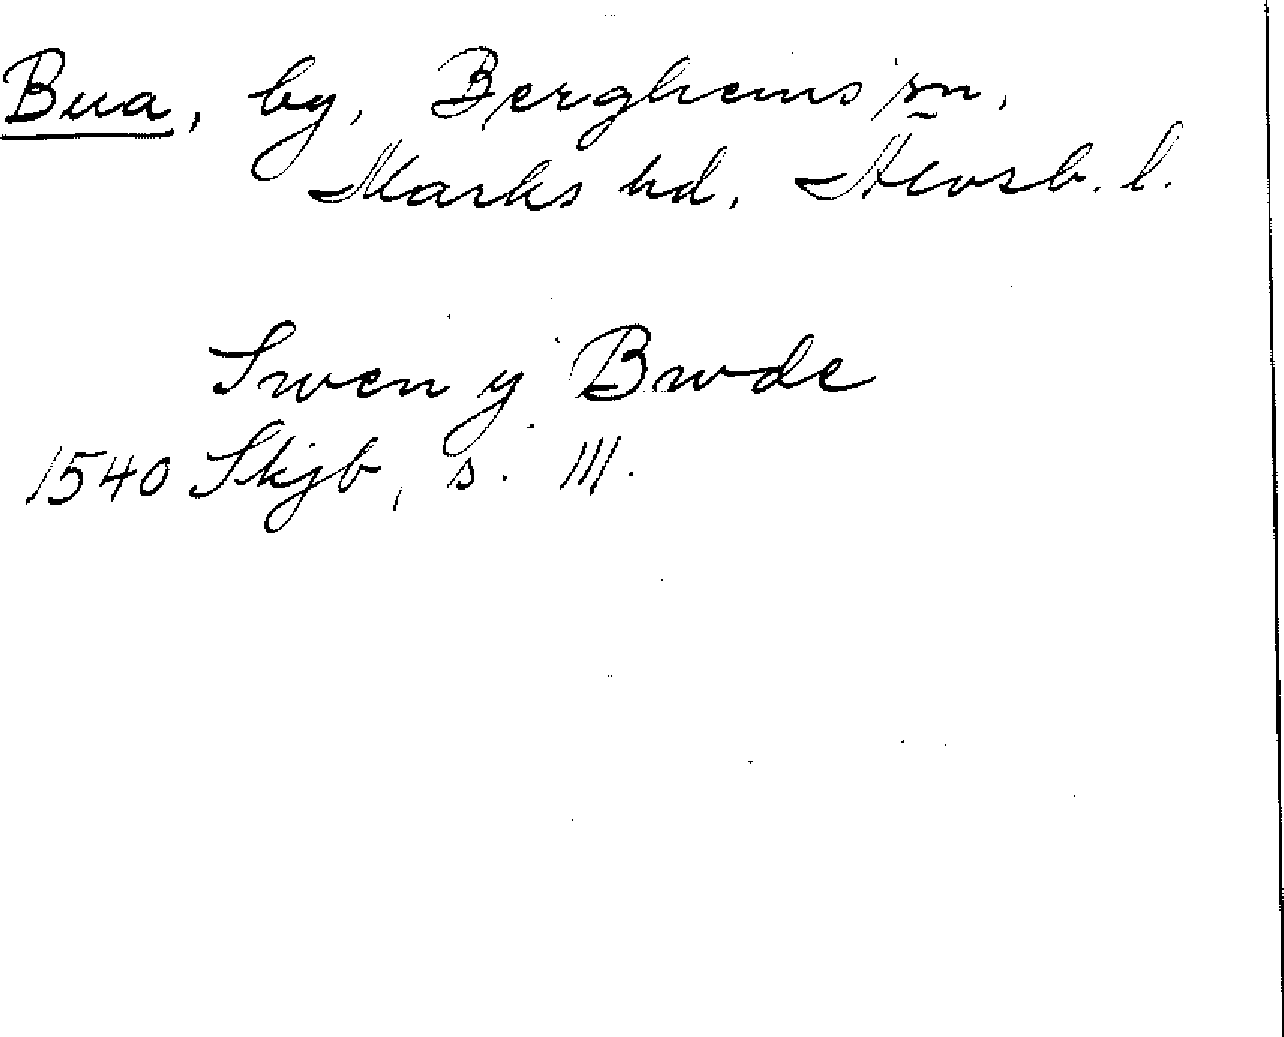 Bua, by, Berghems sn,
Marks hd, Älvsb. l.
Swen y Bwde
1540 Skjb, s. 111.